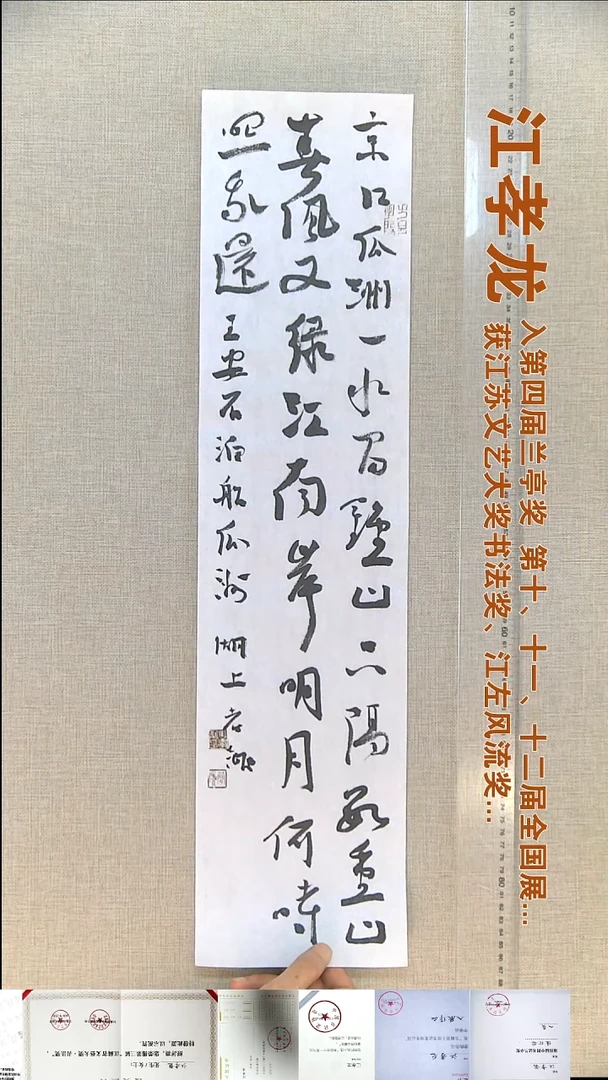 江孝龙
入第四届兰亭奖 第十、十一、十二届全国展...
获江苏文艺大奖书法奖、江左风流奖...
京口瓜洲一水间鐘山只隔数重山
春風又绿江南岸明月何時
照我還 王安石泊船瓜洲 湖上孝龍